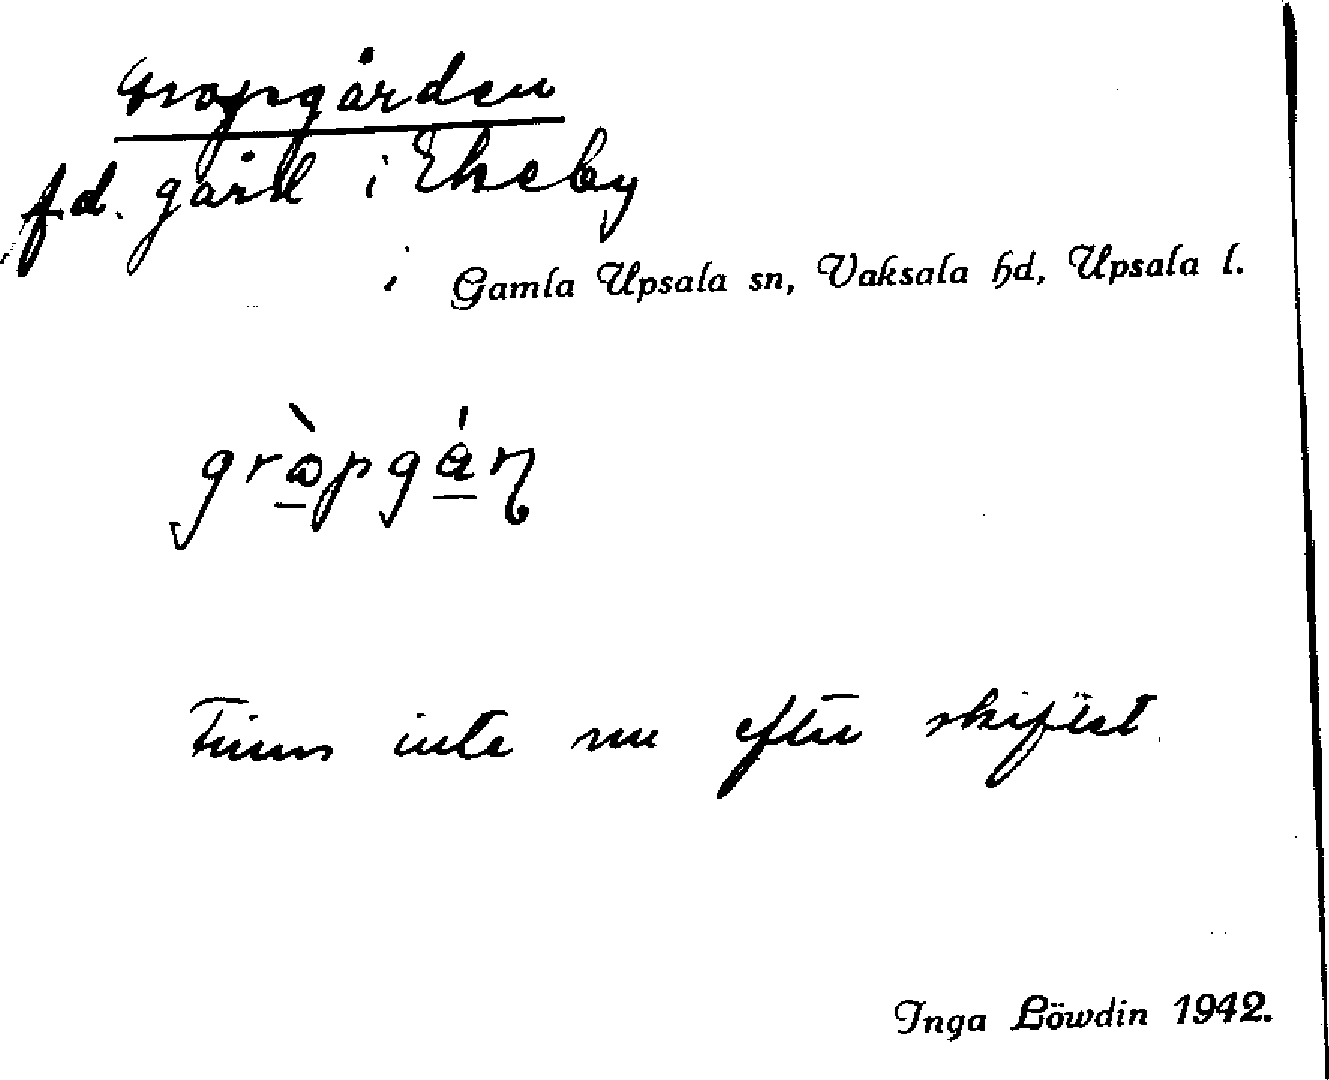 Gropgården
fd. gård i Ekeby
Gamla Upsala sn, Vaksala hd, Upsala l.
grò̱pgá̱ɳ
Finns inte nu efter skiftet
Inga Löwdin 1942.